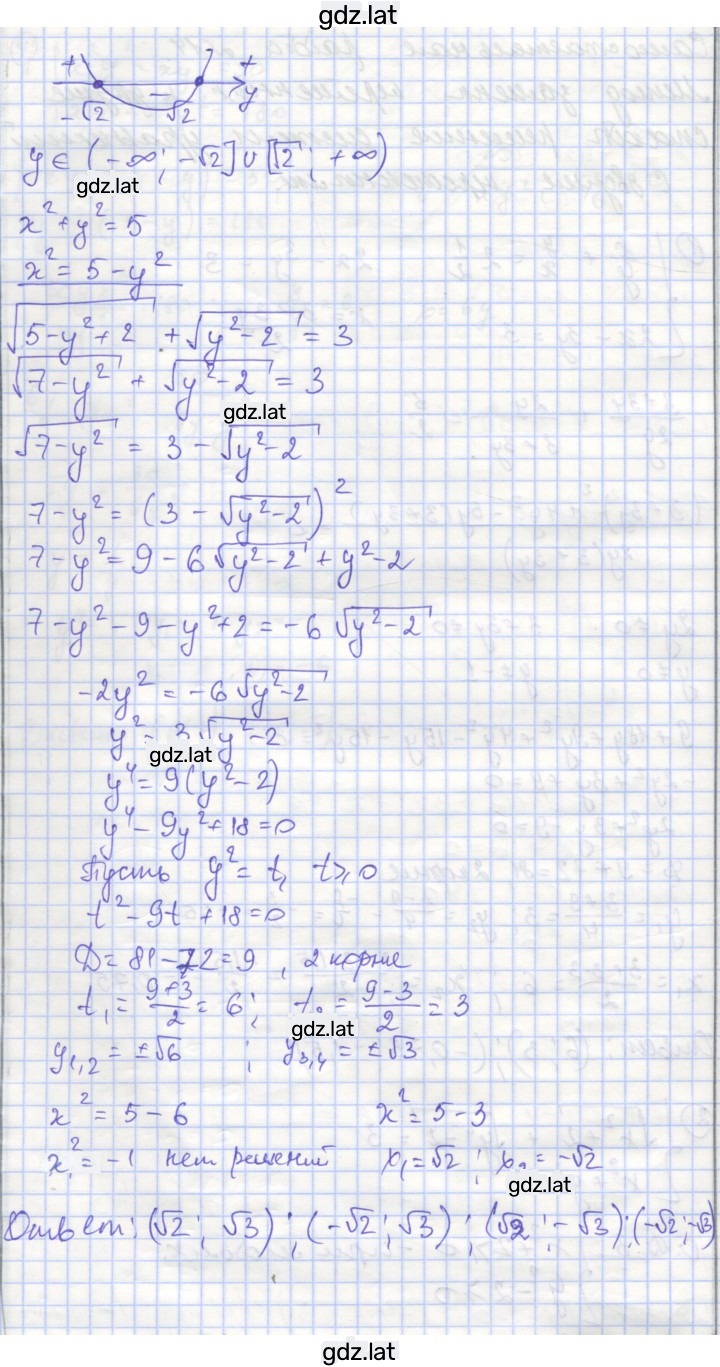 gdz.lat
+ − + y
-√2 √2
y ∈ (-∞; -√2] ∪ [√2; +∞)
gdz.lat
x² + y² = 5
x² = 5 - y²
√(5 - y² + 2) + √(y² - 2) = 3
√(7 - y²) + √(y² - 2) = 3
gdz.lat
√(7 - y²) = 3 - √(y² - 2)
7 - y² = (3 - √(y² - 2))²
7 - y² = 9 - 6√(y² - 2) + y² - 2
7 - y² - 9 - y² + 2 = -6√(y² - 2)
-2y² = -6√(y² - 2)
y² = 3√(y² - 2)
gdz.lat
y⁴ = 9(y² - 2)
y⁴ - 9y² + 18 = 0
Пусть y² = t, t ≥ 0
t² - 9t + 18 = 0
D = 81 - 72 = 9, 2 корня
t₁ = (9+3)/2 = 6; t₂ = (9-3)/2 = 3
gdz.lat
y₁,₂ = ±√6; y₃,₄ = ±√3
x² = 5 - 6 x² = 5 - 3
x² = -1 нет решений x₁ = √2; x₂ = -√2
gdz.lat
Ответ: (√2; √3); (-√2; √3); (√2; -√3); (-√2; -√3)
gdz.lat